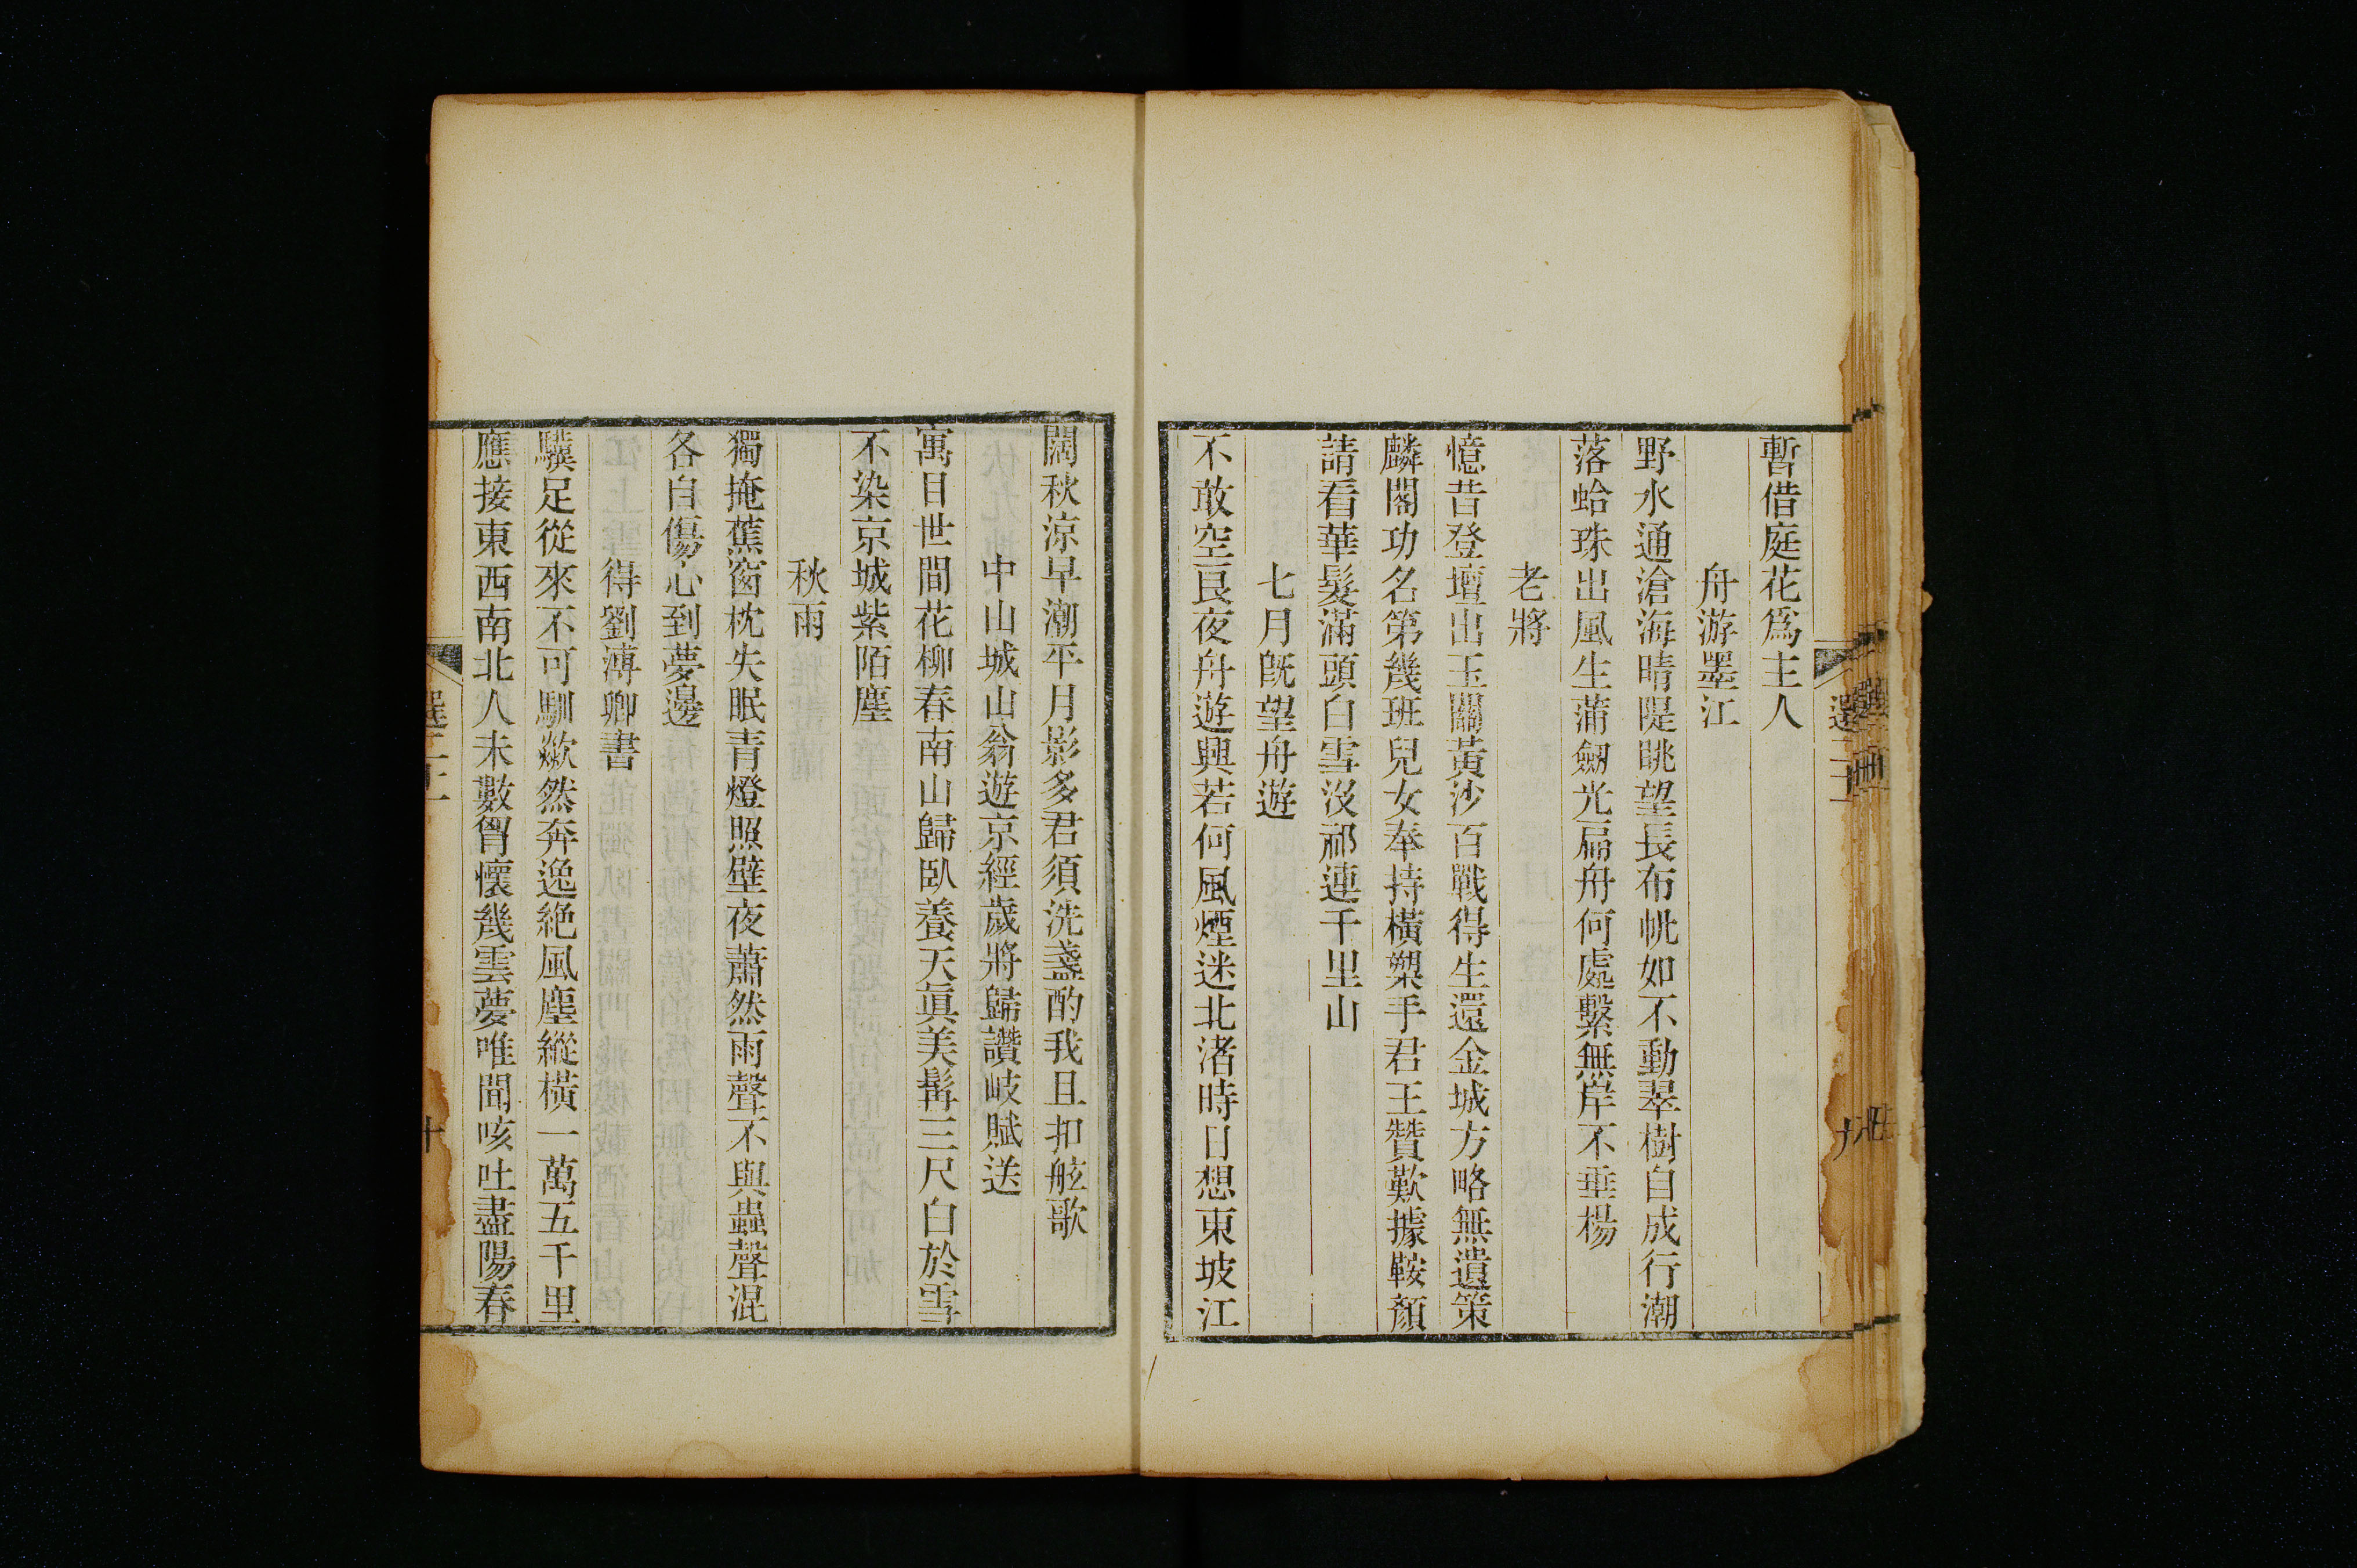 暫借庭花爲主人
舟游墨江
野水通滄海晴隄眺望長布帆如不動翠樹自成行潮
落蛤珠出風生蒲劒光扁舟何處繫無岸不垂楊
老將
憶昔登壇出玉關黃沙百戰得生還金城方略無遺策
麟閣功名第幾班兒女奉持橫槊手君王贊歎據鞍顏
請看華髮滿頭白雪沒祁連千里山
七月旣望舟遊
不敢空艮夜舟遊興若何風煙迷北渚時日想東坡江
闊秋涼早潮平月影多君須洗盞酌我且扣舷歌
中山城山翁遊京經歲將歸讚岐賦送
寓目世間花柳春南山歸臥養天眞美髯三尺白於雪
不染京城紫陌塵
秋雨
獨掩蕉窗枕失眠靑燈照壁夜蕭然雨聲不與蟲聲混
各自傷心到夢邊
得劉溥卿書
驥足從來不可馴歘然奔逸絶風塵縱橫一萬五千里
應接東西南北人未數胷懷幾雲夢唯聞咳吐盡陽春
十